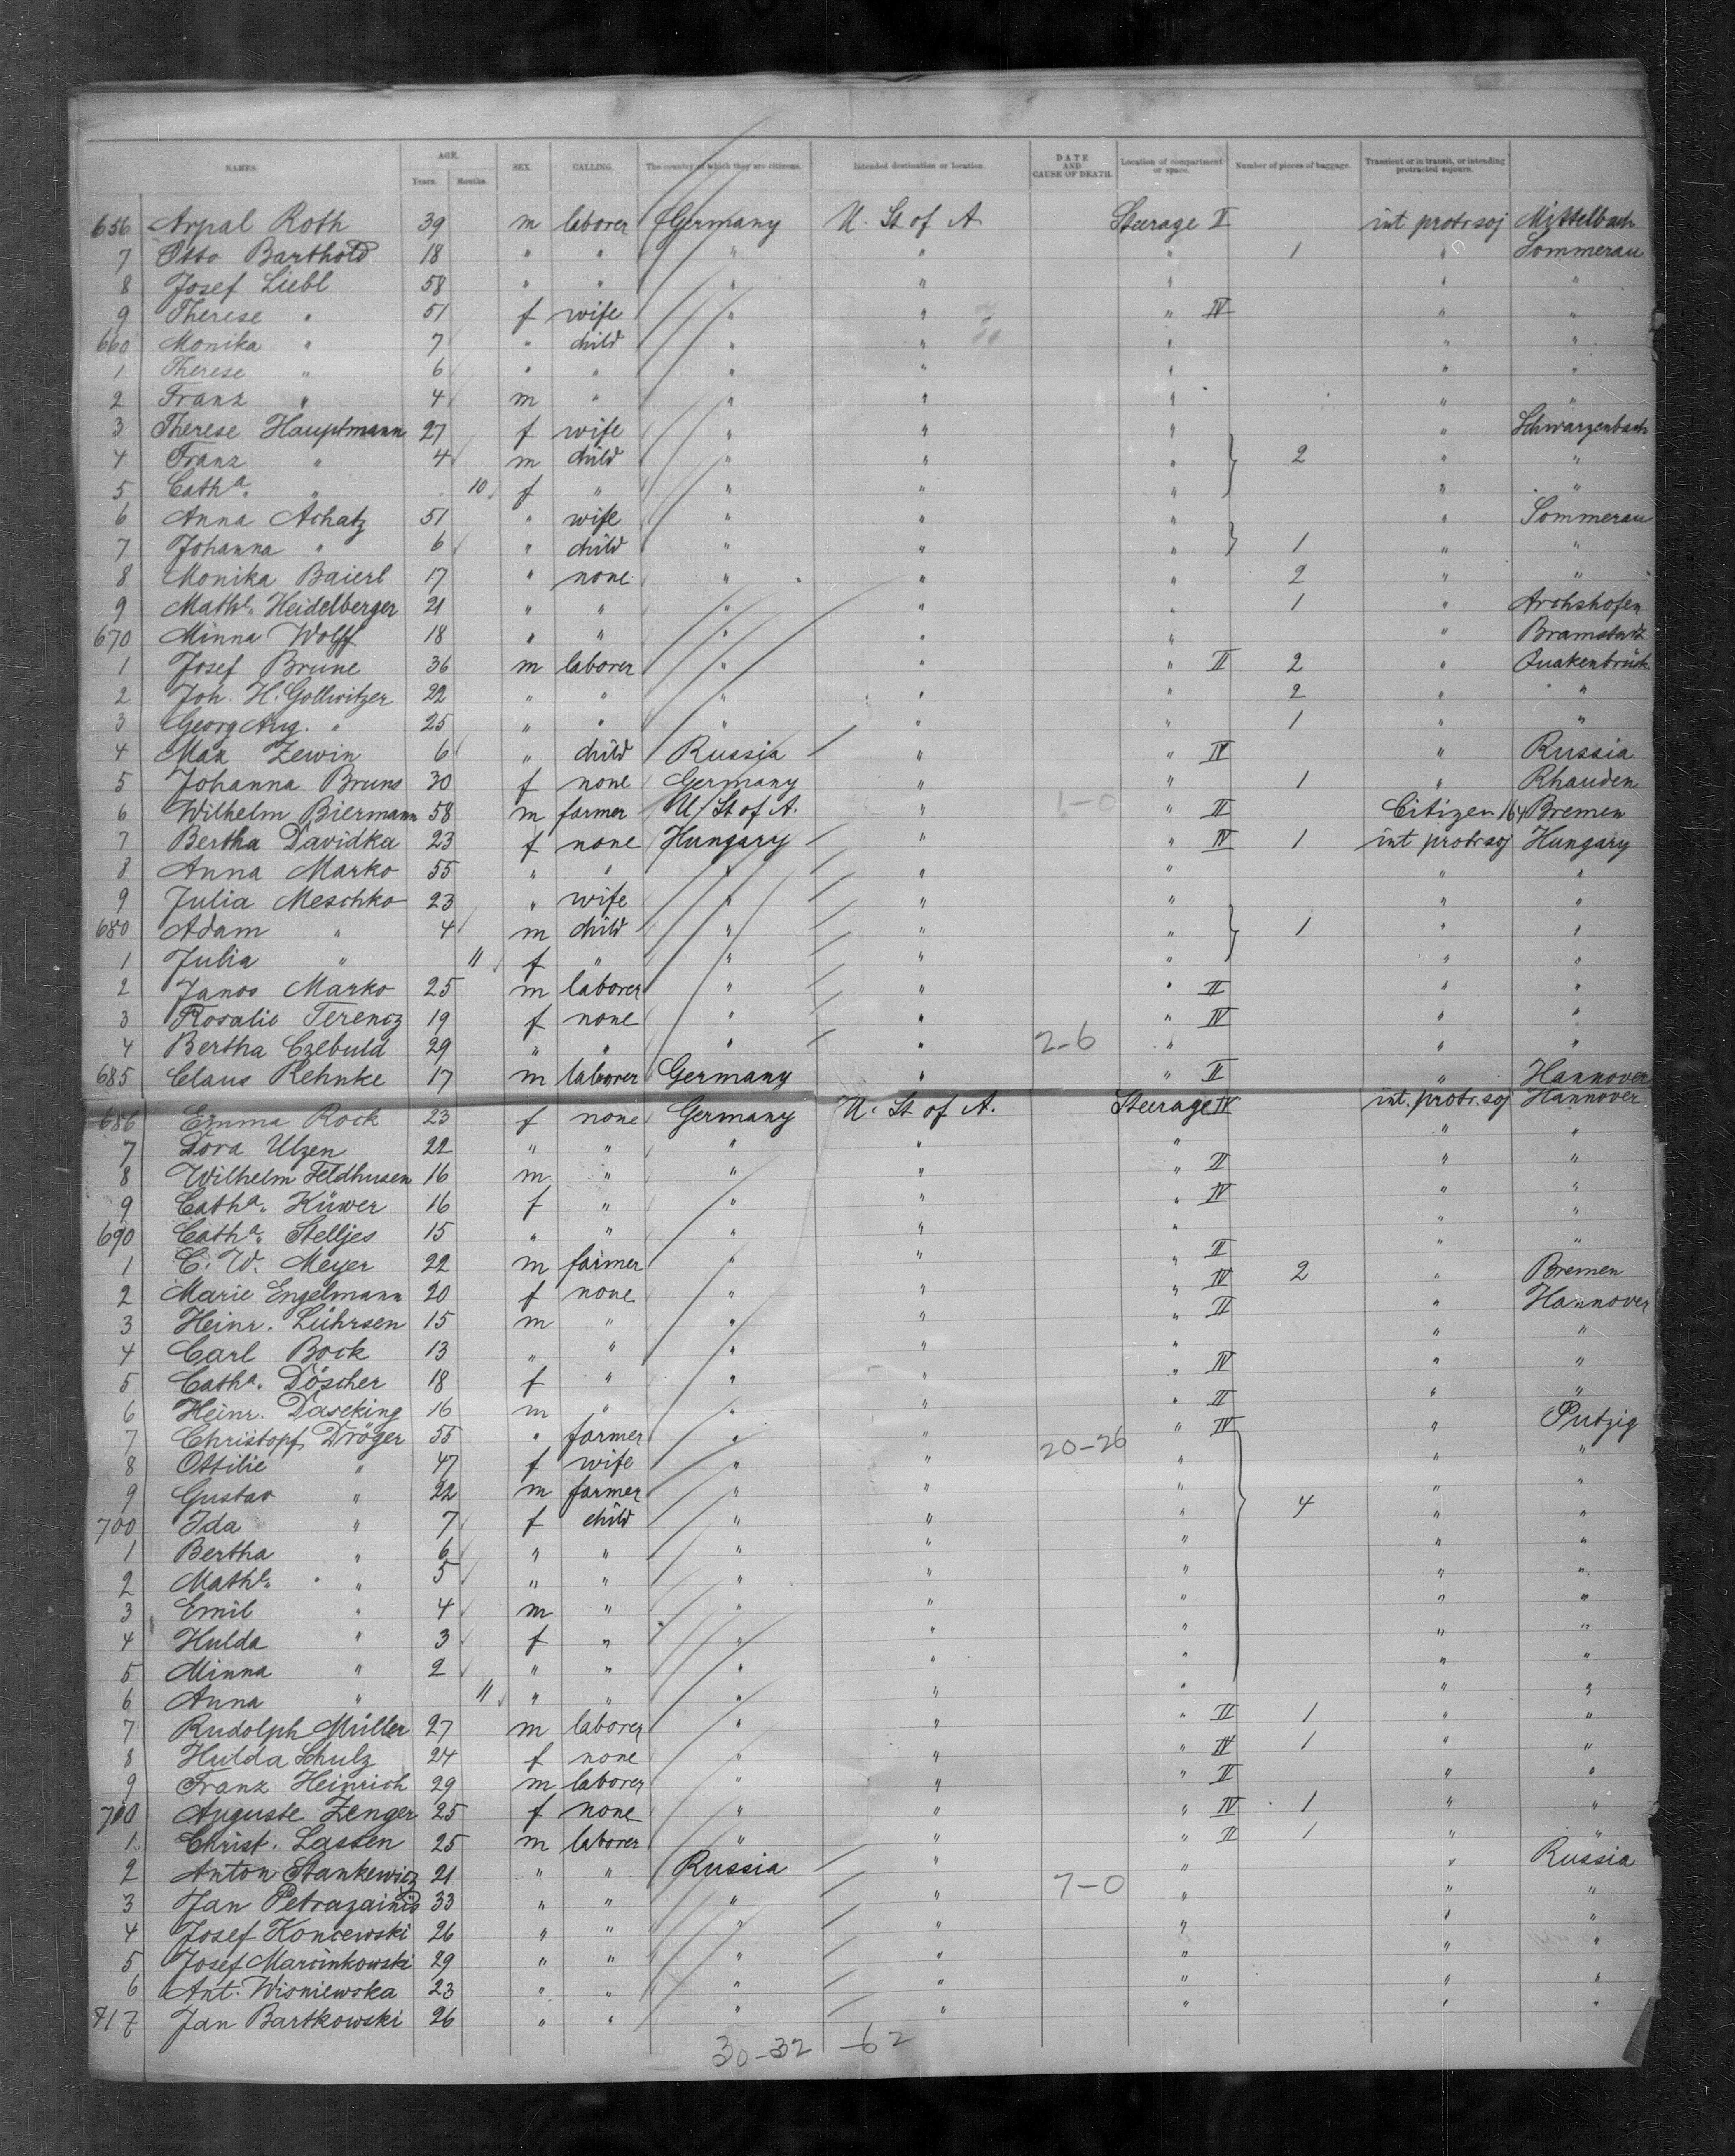 NAMES. AGE. Years. Months. SEX. CALLING. The country of which they are citizens. Intended destination or location. DATE AND CAUSE OF DEATH. Location of compartment or space. Number of pieces of baggage. Transient or in transit, or intending protracted sojourn.
656 Arpal Roth 39 m laborer Germany U. St of A Steerage II int protr soj Mittelbach
7 Otto Barthold 18 " " " " " 1 " Sommerau
8 Josef Liebl 58 " " " " " " "
9 Therese " 51 f wife " " " IV " "
660 Monika " 7 " child " " " " "
1 Therese " 6 " " " " " " "
2 Franz " 4 m " " " " " "
3 Therese Hauptmann 27 f wife " " " " Schwarzenbach
4 Franz " 4 m child " " " 2 " "
5 Catha. " 10 f " " " " " "
6 Anna Achatz 51 " wife " " " " Sommerau
7 Johanna " 6 " child " " " 1 " "
8 Monika Baierl 17 " none " " " 2 " "
9 Mathe. Heidelberger 21 " " " " " 1 " Archshofen
670 Minna Wolff 18 " " " " " " Bramstedt
1 Josef Brune 36 m laborer " " " II 2 " Quakenbrück
2 Joh. H. Gollwitzer 22 " " " " " 2 " "
3 Georg Aug. " 25 " " " " " 1 " "
4 Max Zewin 6 " child Russia " " IV " Russia
5 Johanna Bruns 30 f none Germany " " 1 " Rhauden
6 Wilhelm Biermann 58 m farmer U. St of A. " 1-0 " II Citizen 164 Bremen
7 Bertha Davidka 23 f none Hungary " " IV 1 int protr soj Hungary
8 Anna Marko 55 " " " " " " "
9 Julia Meschko 23 " wife " " " " "
680 Adam " 4 m child " " " 1 " "
1 Julia " 11 f " " " " " "
2 Janos Marko 25 m laborer " " " II " "
3 Rosalie Terencz 19 f none " " " IV " "
4 Bertha Czebuld 29 " " " " 2-6 " " "
685 Claus Rehnke 17 m laborer Germany " " II " Hannover
686 Emma Rock 23 f none Germany U. St of A. Steerage IV int. protr. soj Hannover
7 Dora Ulzen 22 " " " " " " "
8 Wilhelm Feldhusen 16 m " " " " II " "
9 Catha. Küwer 16 f " " " " IV " "
690 Catha. Stelljes 15 " " " " " " "
1 C. W. Meyer 22 m farmer " " " II " "
2 Marie Engelmann 20 f none " " " IV 2 " Bremen
3 Heinr. Lührsen 15 m " " " " II " Hannover
4 Carl Bock 13 " " " " " " "
5 Catha. Döscher 18 f " " " " IV " "
6 Heinr. Daseking 16 m " " " " II " "
7 Christopf Dröger 55 " farmer " " 20-26 " IV " Putzig
8 Ottilie " 47 f wife " " " " "
9 Gustav " 22 m farmer " " " " "
700 Ida " 7 f child " " " 4 " "
1 Bertha " 6 " " " " " " "
2 Mathe. " 5 " " " " " " "
3 Emil " 4 m " " " " " "
4 Hulda " 3 f " " " " " "
5 Minna " 2 " " " " " " "
6 Anna " 11 " " " " " " "
7 Rudolph Müller 27 m laborer " " " II 1 " "
8 Hulda Schulz 24 f none " " " IV 1 " "
9 Franz Heinrich 29 m laborer " " " II " "
710 Auguste Zenger 25 f none " " " IV 1 " "
1 Christ. Lassen 25 m laborer " " " II 1 " "
2 Anton Stankewicz 21 " " Russia " " " Russia
3 Jan Petrazainis 33 " " " " 7-0 " " "
4 Josef Koncewski 26 " " " " " " "
5 Josef Marcinkowski 29 " " " " " " "
6 Ant. Wisniewska 23 " " " " " " "
717 Jan Bartkowski 26 " " " " " " "
30-32 -62